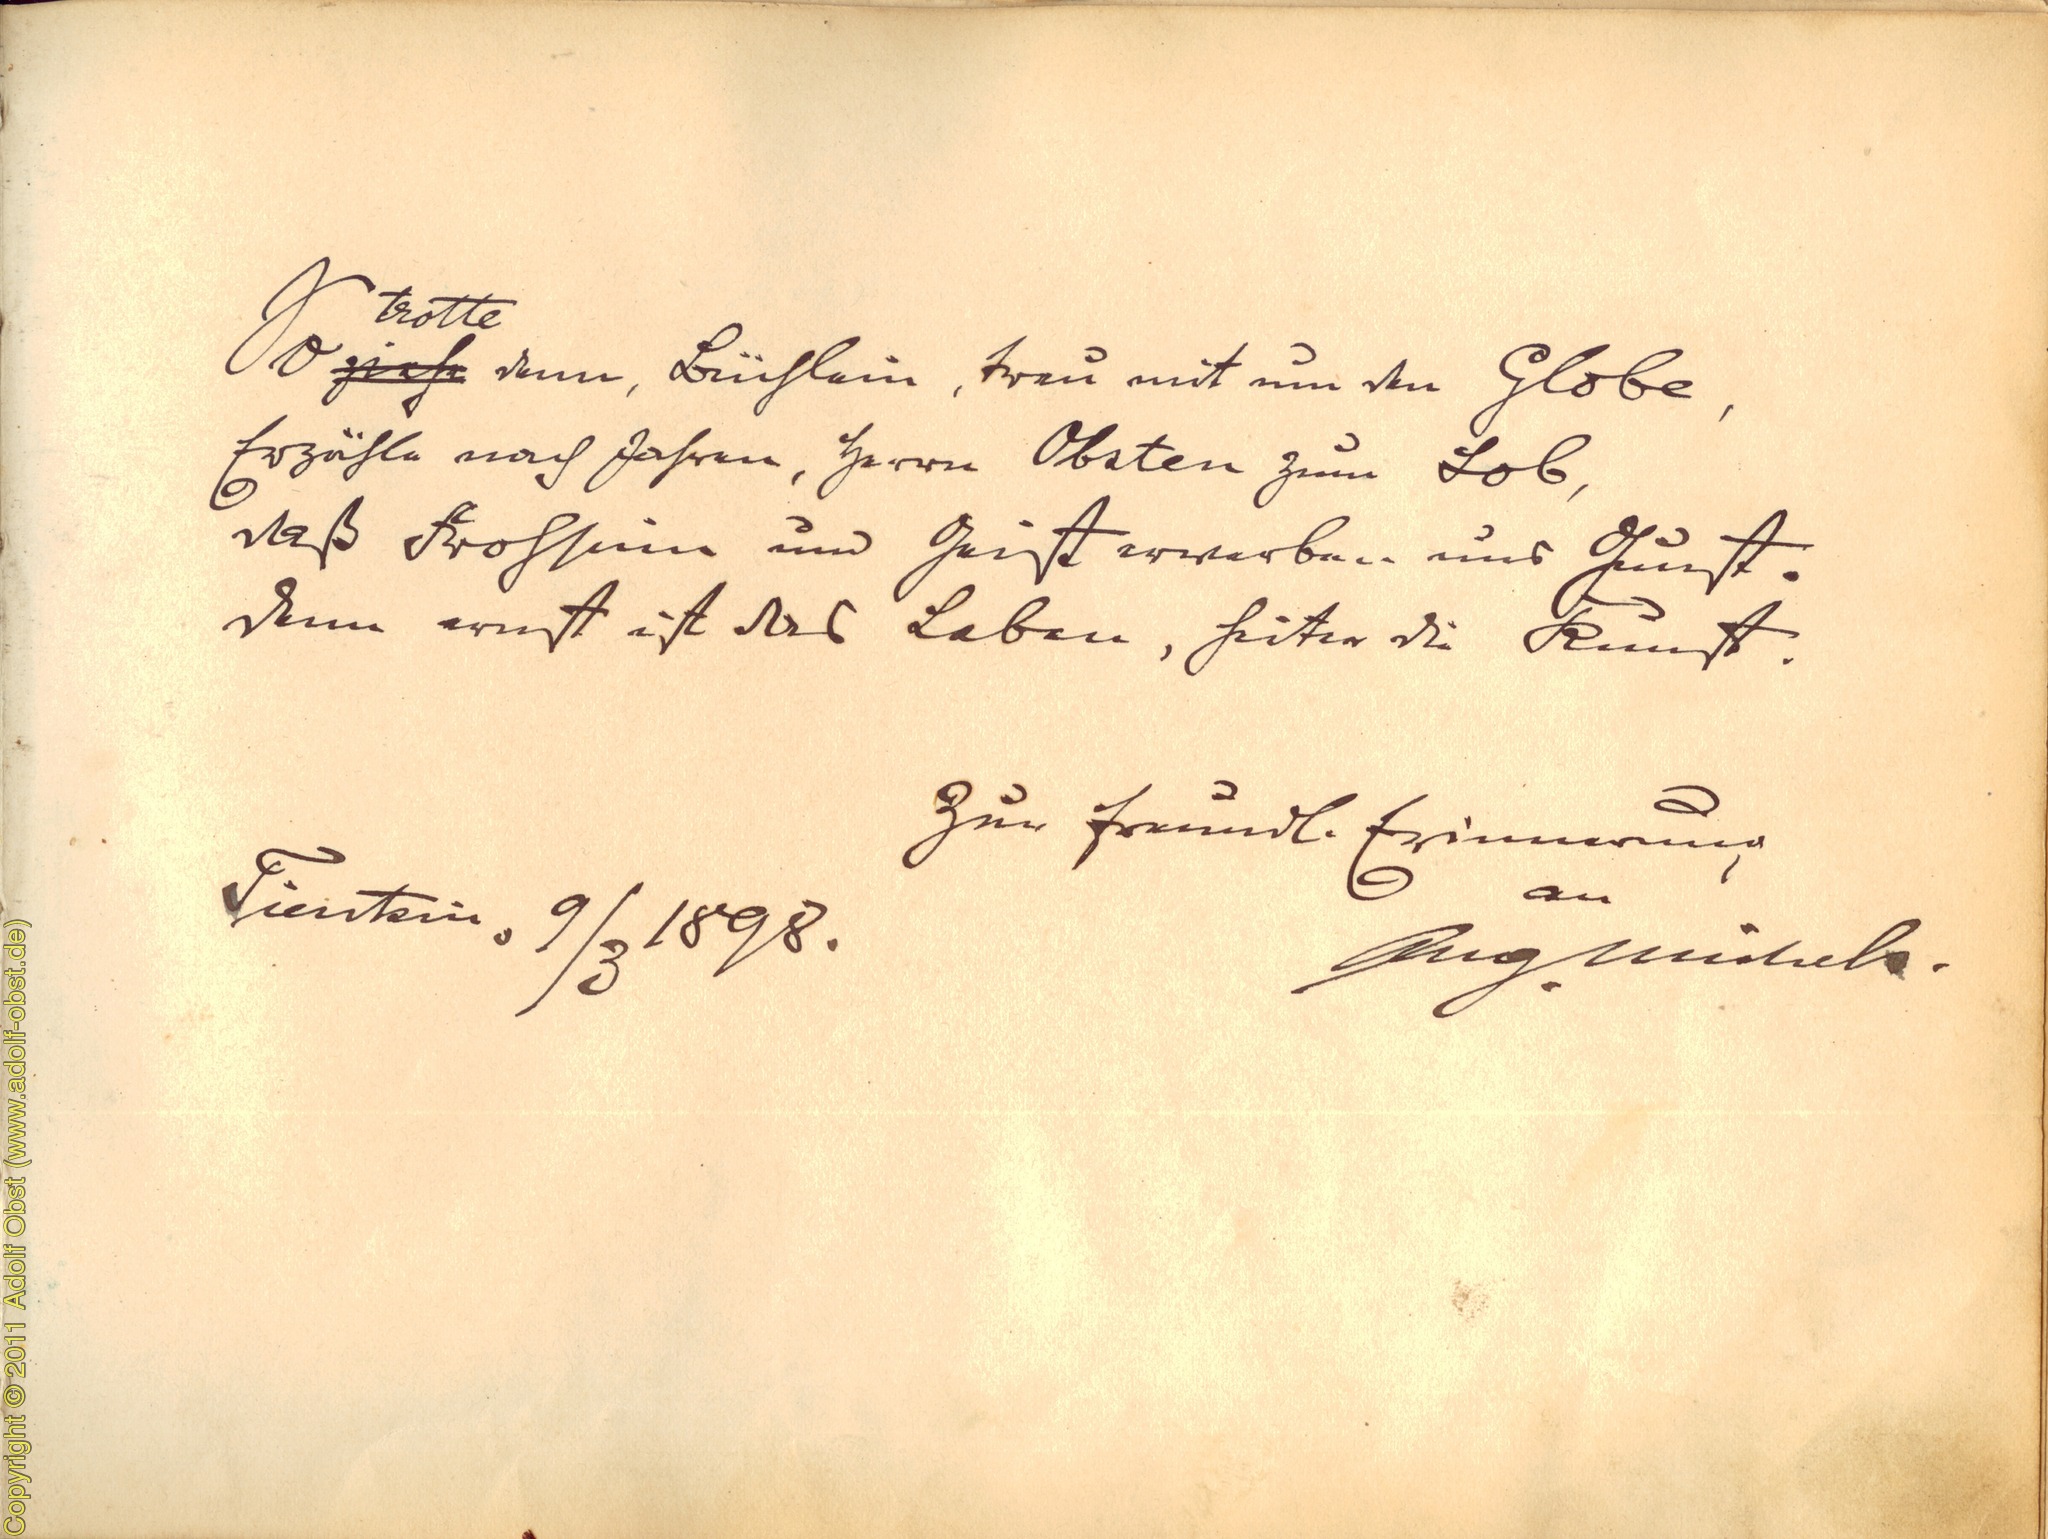 trotte
So ziehe denn, Büchlein, treu mit um den Globe,
Erzähle nach Jahren, Herrn Obsten zum Lob,
daß Frohsinn und Geist erwerben uns Gunst.
denn ernst ist das Leben, heiter die Kunst.
Zur freundl. Erinnerung
an
Tientsin, 9/3 1898.
Aug. Michels.
Copyright © 2011 Adolf Obst (www.adolf-obst.de)